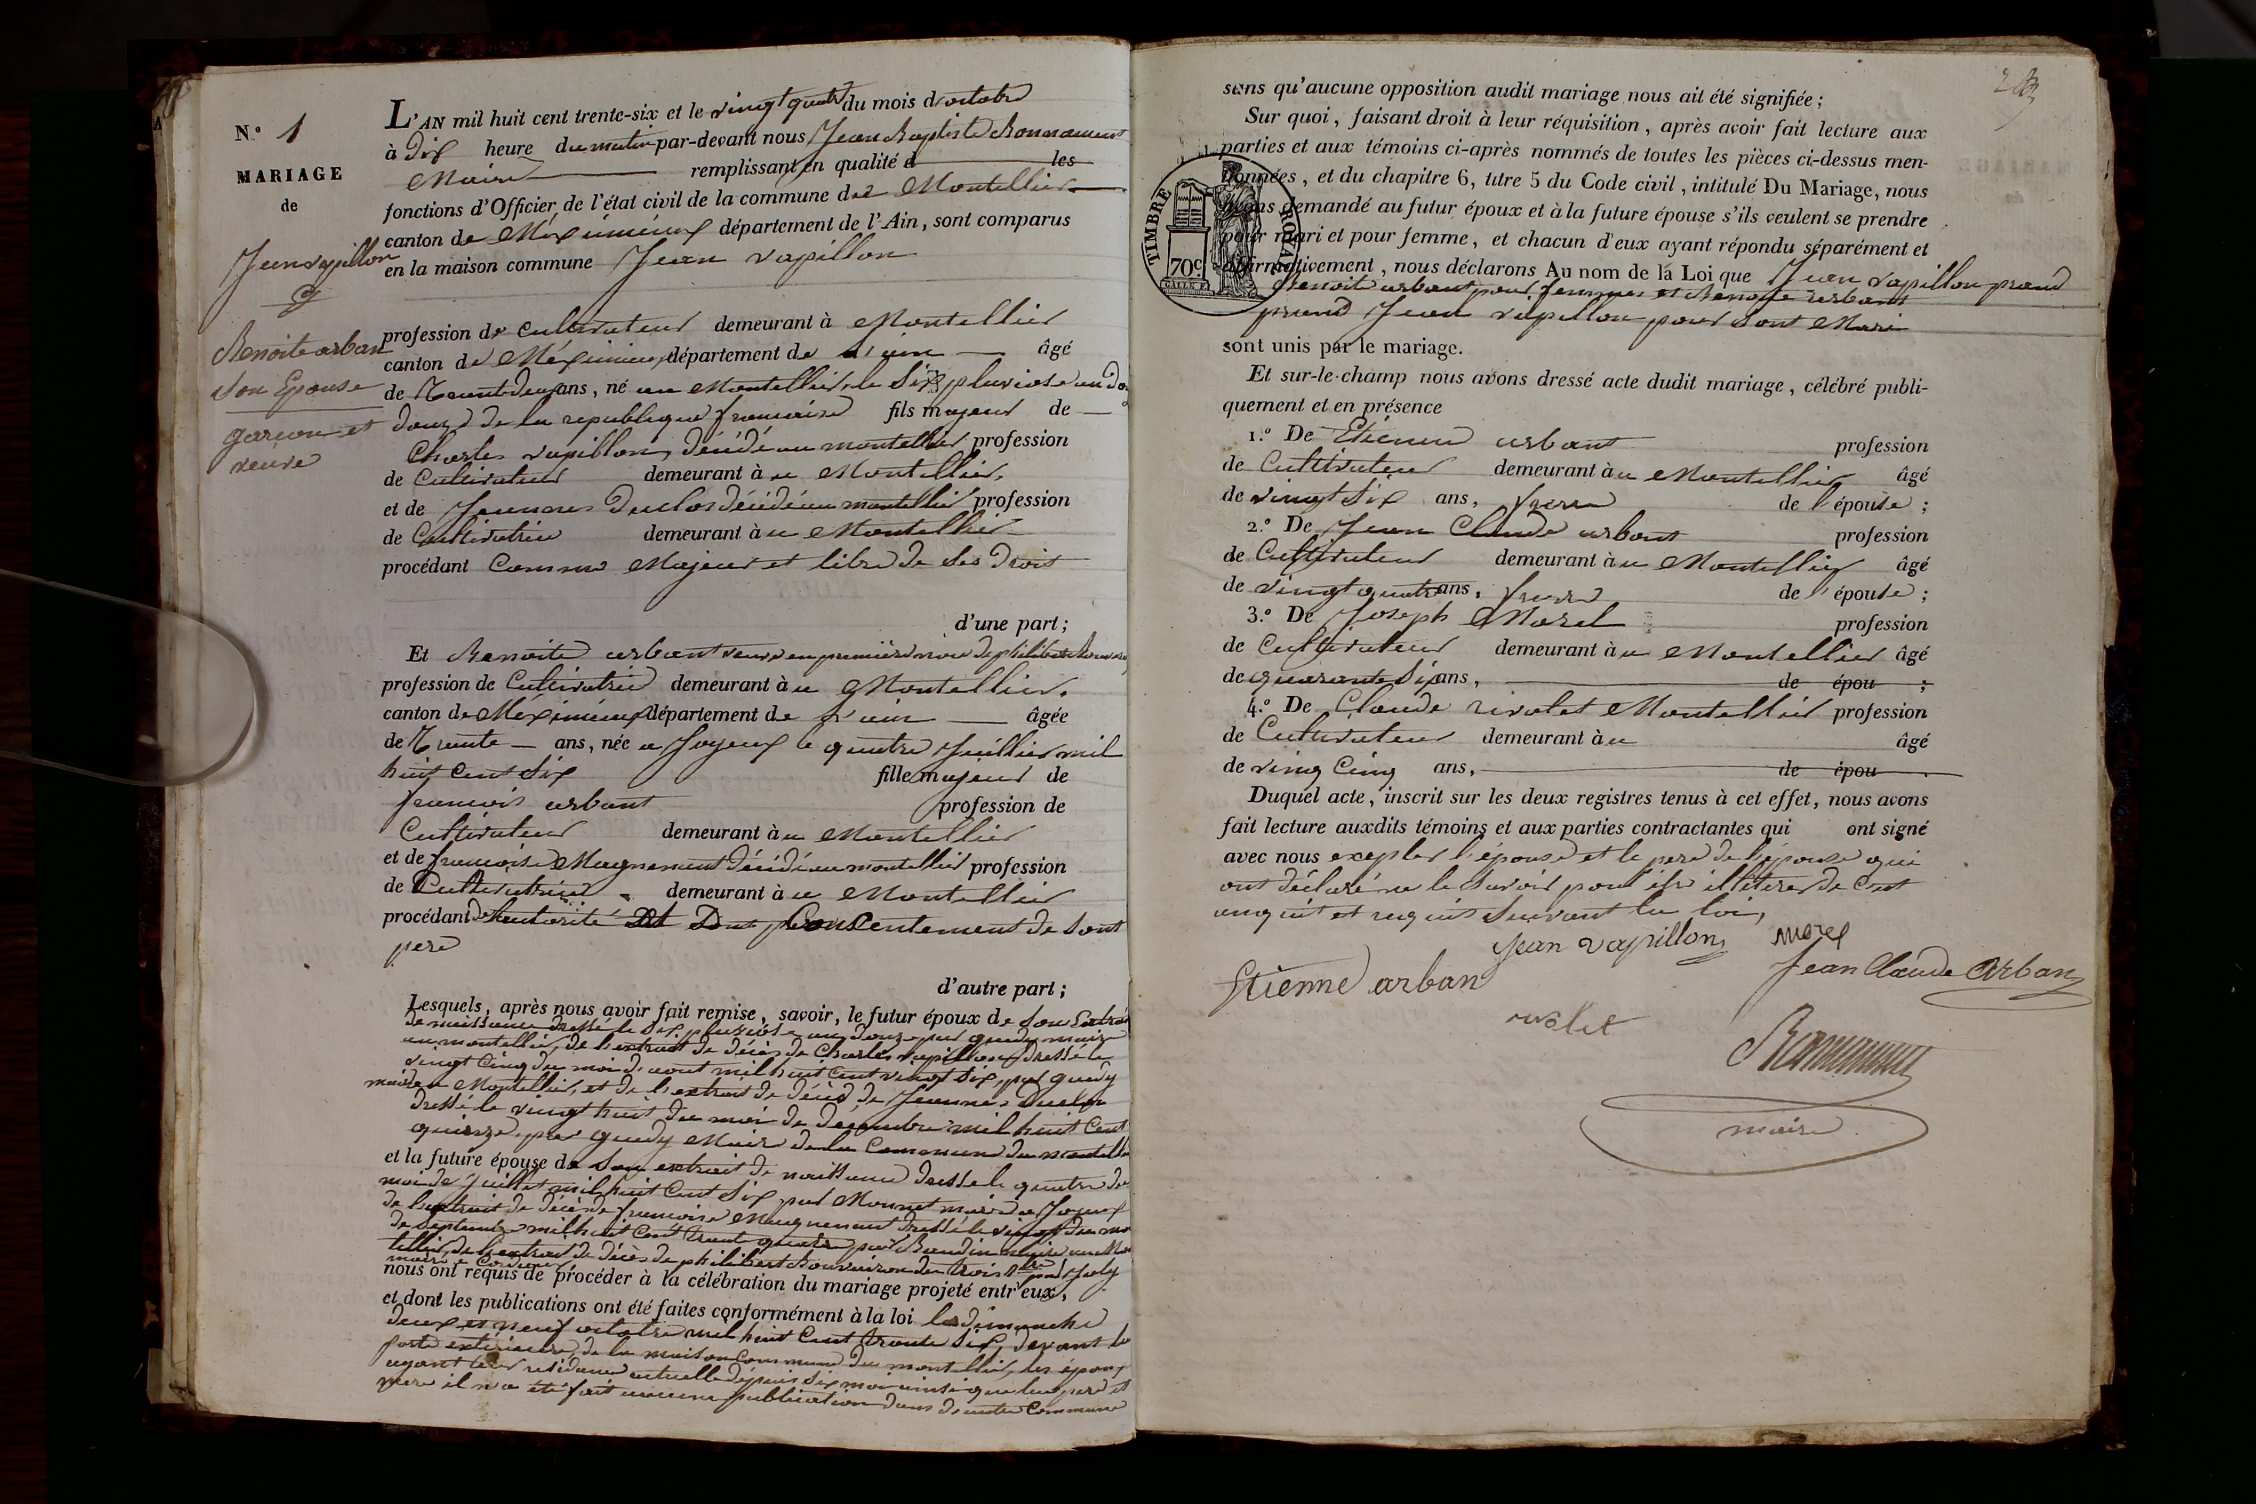 N.o 1
MARIAGE
de
Jean vapillon
&
Benoite arban
son Epouse
garcon et
veuve
L'AN mil huit cent trente-six et le vingt quatre du mois d'octobre
à dix heure du matin par-devant nous Jean Baptiste
Maire remplissant en qualité d les
fonctions d'Officier de l'état civil de la commune de Montellier
canton de Méximieux département de l'Ain, sont comparus
en la maison commune Jean vapillon
profession de Cultivateur demeurant à Montellier
canton de Méximieux département de l'ain âgé
de Trente deux ans, né au Montellier le Six pluviose an
douze de la republique francaise fils majeur de
Charles vapillon, décédé au montellier profession
de Cultivateur demeurant à au Montellier,
et de Jeanne Duclos décédé au montellier profession
de Cultivatrice demeurant à au Montellier
procédant Comme Majeur et libre de ses Droit
d'une part;
Et Benoite arbant veuve en premiere noce de philibert
profession de Cultivatrice demeurant à au Montellier.
canton de Méximieux département de L'ain âgée
de Trente ans, née a Joyeux le quatre Juillier mil
huit Cent Six fille majeur de
francois arbant profession de
Cultivateur demeurant à au Montellier
et de francoise Magnenant décédé au montellier profession
de Cultivatrice demeurant à au Montellier
procédant de Lautorité et Consentement de sont
pere
d'autre part;
Lesquels, après nous avoir fait remise, savoir, le futur époux de Son Extrait
de naissance dressé le six pluviose an douze par quedy maire
au montellier, de l'extrait de décès de Charles vapillon dressé le
vingt Cinq du moi d'aout mil huit Cent vingt six, par quedy
maire a Montellier, et de l'extrait de décès de Jeanne Duclos
dressé le vingt huit du moi de décembre mil huit Cent
quinze par quedy Maire de la Commune du montellier
et la future épouse de son extrait de naissance dressé le quatre du
moi de Juillet mil huit Cent Six par Monnet maire a Joyeux
de l'extrait de décès de francoise Magnenant dressé le vingt du moi
de Septembre mil huit Cent trente quatre par Baudin maire au Mon
tellier, de l'extrait de décès de philibert du trois par Joly
maire a
nous ont requis de procéder à la célébration du mariage projeté entr'eux,
et dont les publications ont été faites conformément à la loi les dimanche
deux et neuf octobre mil huit Cent trente Six, devant la
porte extérieure de la maison Commune du montellier, les époux
ayant leur residance actuelle depuis Six moi ainsi que leur pere et
mere il n'a été fait aucune publication dans d'autre Commune
sans qu'aucune opposition audit mariage nous ait été signifiée;
Sur quoi, faisant droit à leur réquisition, après avoir fait lecture aux
parties et aux témoins ci-après nommés de toutes les pièces ci-dessus men-
tionnées, et du chapitre 6, titre 5 du Code civil, intitulé Du Mariage, nous
avons demandé au futur époux et à la future épouse s'ils veulent se prendre
pour mari et pour femme, et chacun d'eux ayant répondu séparément et
affirmativement, nous déclarons Au nom de la Loi que Jean vapillon prand
Benoite arbant pour femme et Benoite arbant
prand Jean vapillon pour sont Mari
sont unis par le mariage.
Et sur-le-champ nous avons dressé acte dudit mariage, célébré publi-
quement et en présence
1.o De Etienne arbant profession
de Cultivateur demeurant à au Montellier âgé
de vingt Six ans, frere de l'épouse;
2.o De Jean Claude arbant profession
de Cultivateur demeurant à au Montellier âgé
de vingt quatre ans, frere de l'épouse;
3.o De Joseph Morel profession
de Cultivateur demeurant à au Montellier âgé
de quarante Six ans, de épou ;
4.o De Claude rivolet Montellier profession
de Cultivateur demeurant à au âgé
de ving Cinq ans, de épou .
Duquel acte, inscrit sur les deux registres tenus à cet effet, nous avons
fait lecture auxdits témoins et aux parties contractantes qui ont signé
avec nous excepter l'épouse et le pere de l'épouse qui
ont déclaré ne le savoir pour être illiterer de Cent
anquit et requis suivant la loi,
Jean vapillon morel
Etienne arban Jean Claude Arban
rivolet
maire
TIMBRE ROYAL
70c.